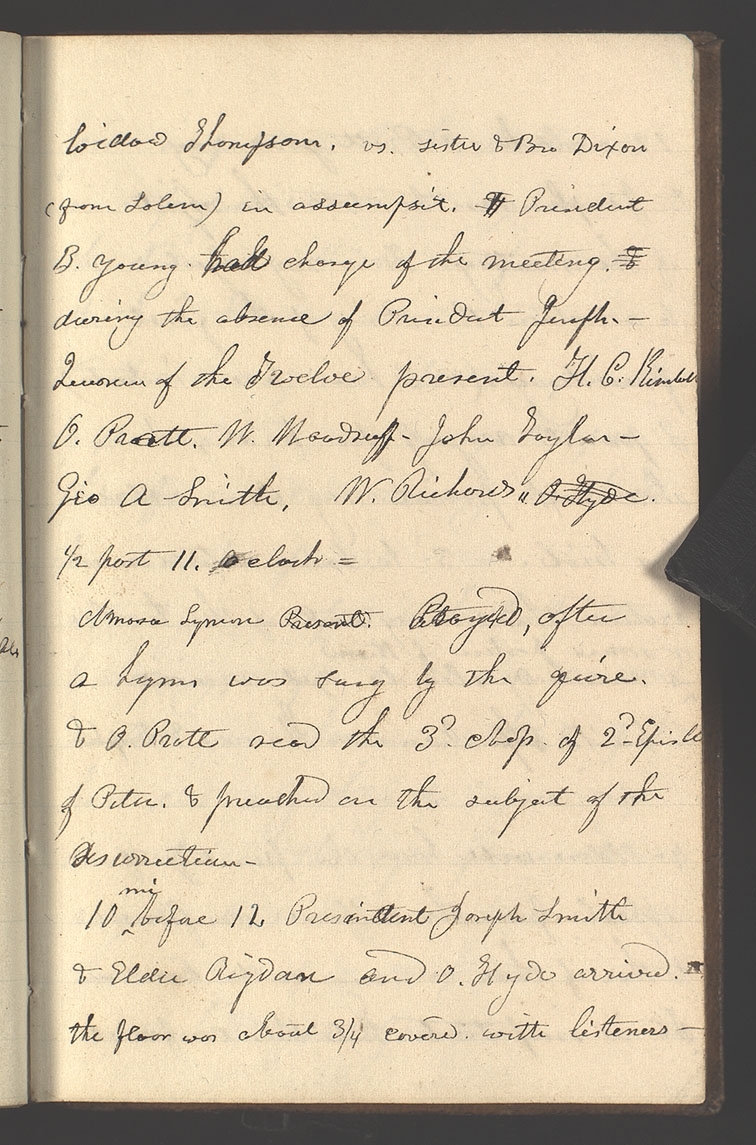 widow Thompson. vs. sister & Bro Dixon
(from Salem) in assumpsit. President
B. Young had charge of the meeting. &
during the absence of Presidet Joseph.-
Quorum of the Twelve present. H. C. Kimball
O. Pratt. W. Woodruff- John Taylor-
Geo A Smith, W. Richards,, O. Hyde.
1/2 past 11. oclock =
Amasa Lyman Present. Prayed, after
a hymn was sung by the quire.
& O. Pratt read the 3d. chap. of 2d- Epistle
of Peter. & preached on the subject of the
resurrection-
mi
10 before 12, President Joseph Smith
& Elder Rigdon and O. Hyde arrived.
the floor was about 3/4 covered. with listeners-